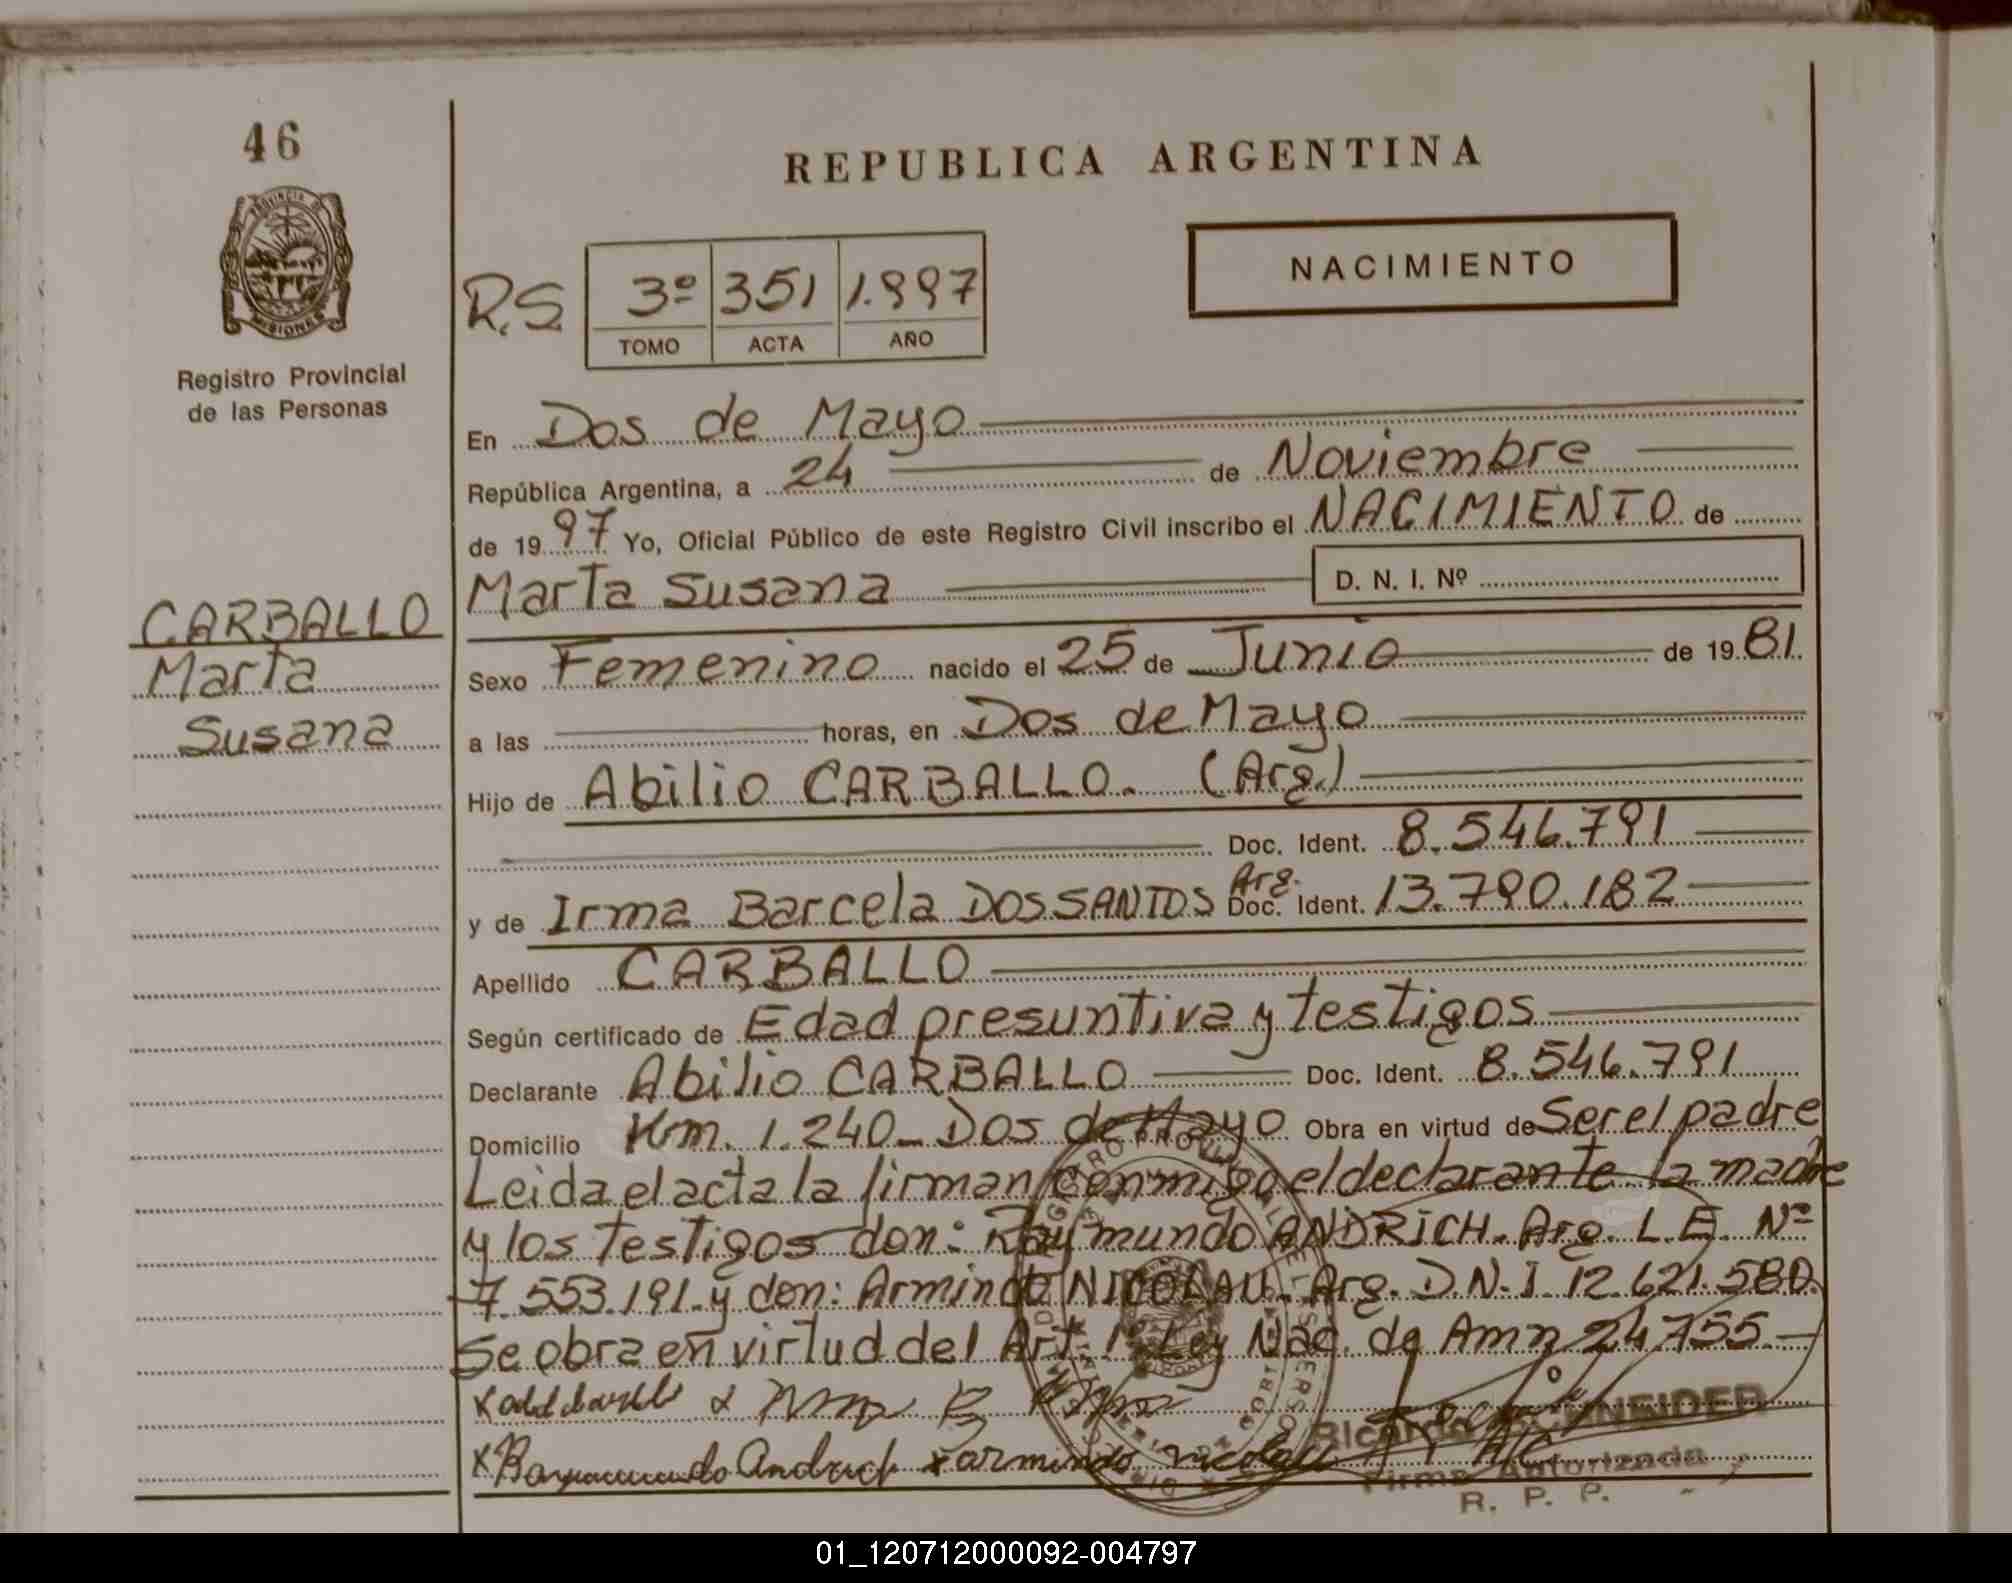 46
REPUBLICA ARGENTINA
PROVINCIA DE
MISIONES
Registro Provincial
de las Personas
NACIMIENTO
R.S. 3º 351 1.997
TOMO ACTA AÑO
En Dos de Mayo
República Argentina, a 24 de Noviembre
de 1997 Yo, Oficial Público de este Registro Civil inscribo el NACIMIENTO de
Marta Susana D. N. I. Nº
CARBALLO
Marta
Susana
Sexo Femenino nacido el 25 de Junio de 1981.
a las horas, en Dos de Mayo
Hijo de Abilio CARBALLO. (Arg.)
Doc. Ident. 8.546.791
y de Irma Barcela DOS SANTOS Arg. Doc. Ident. 13.790.182
Apellido CARBALLO
Según certificado de Edad presuntiva y testigos
Declarante Abilio CARBALLO Doc. Ident. 8.546.791
Domicilio Km. 1.240_ Dos de Mayo Obra en virtud de Ser el padre
Leida el acta la firman conmigo el declarante la madre
y los testigos don: Raymundo ANDRICH. Arg. L.E. Nº
7.553.191. y don: Armindo NICOLAU. Arg. D.N.I. 12.621.580.
Se obra en virtud del Art. 1º Ley Nac. de Amn 24755.-
armindo nicolau
Ricardo SCHNEIDER
Firma Autorizada
R. P. P.
01_120712000092-004797